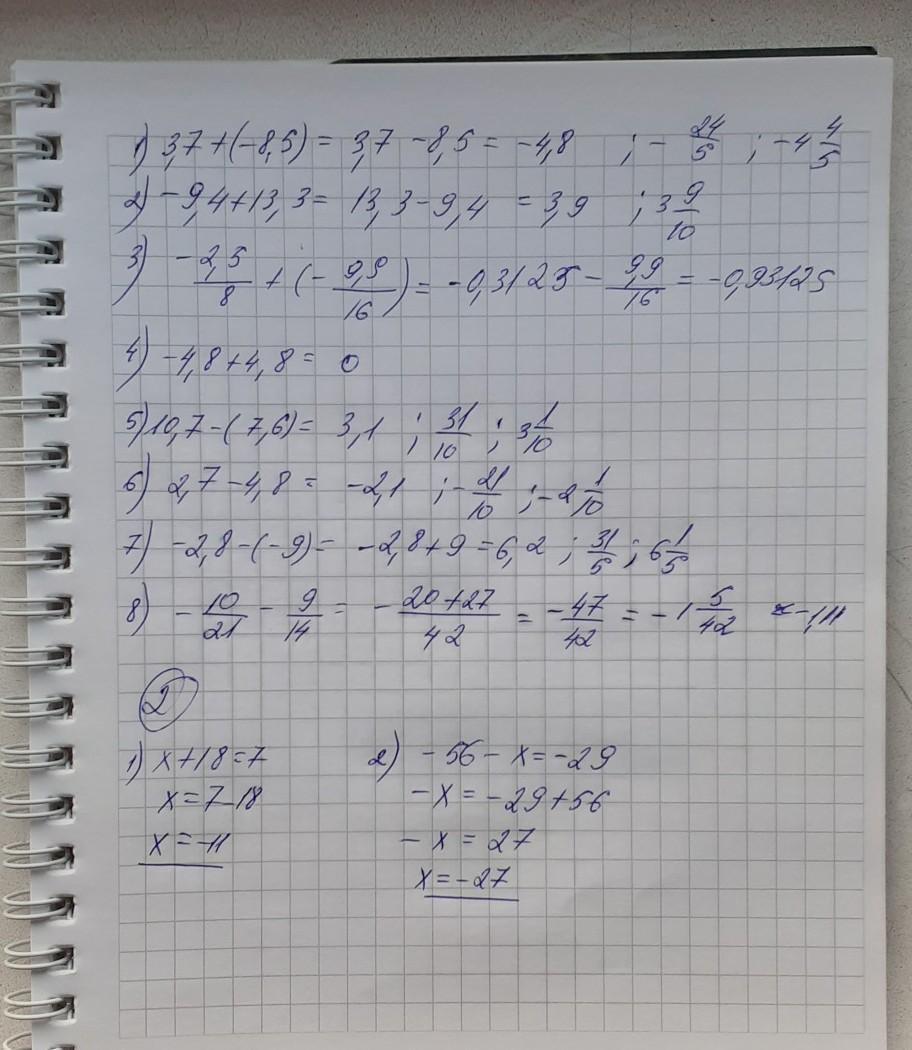 1) 3,7+(-8,5) = 3,7 -8,5 = -4,8 ; - 24/5 ; -4 4/5
2) -9,4+13,3= 13,3-9,4 = 3,9 ; 3 9/10
3) -2,5/8 + (- 9,9/16) = -0,3125 - 9,9/16 = -0,93125
4) -4,8+4,8= 0
5) 10,7-(7,6)= 3,1 ; 31/10 ; 3 1/10
6) 2,7-4,8 = -2,1 ; - 21/10 ; -2 1/10
7) -2,8-(-9)= -2,8+9 =6,2 ; 31/5 ; 6 1/5
8) - 10/21 - 9/14 = - 20+27/42 = -47/42 = -1 5/42 ≈-1,11
2
1) x+18=7
x=7-18
x=-11
2) -56-x=-29
-x=-29+56
-x=27
x=-27